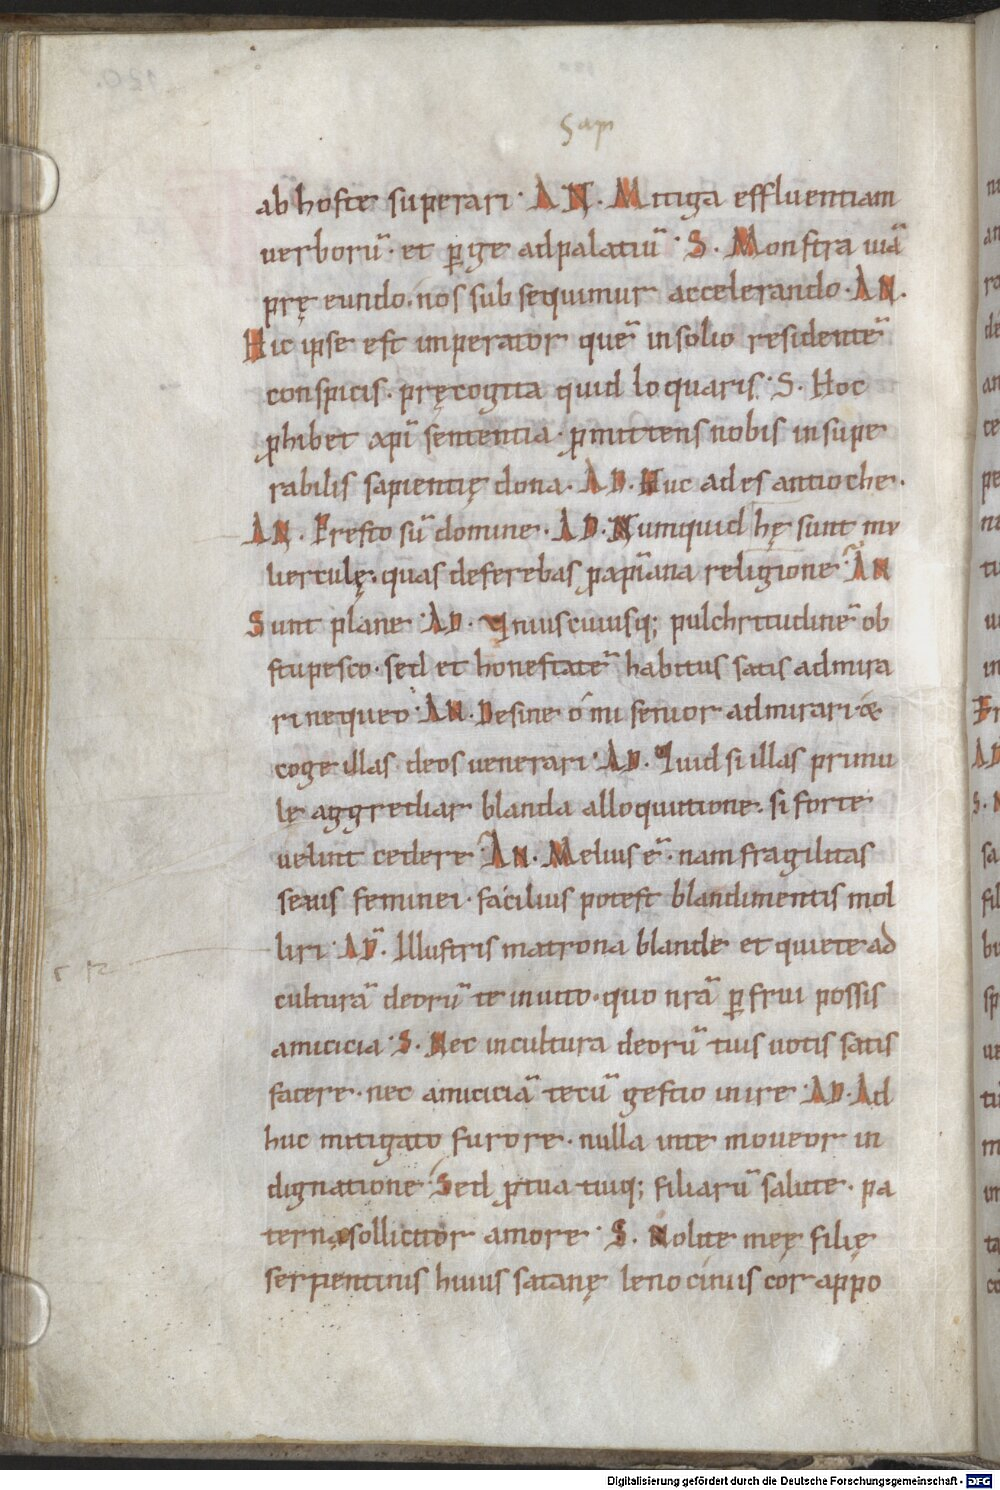 Sap
ab hoste superari· AN. Mitiga effluentiam
uerborū· et ꝑge adpalatiū· S. Monstra uiā
pręeundo. nos subsequimur accelerando· AN.
Hic ipse est imperator quē insolio residentē
conspicis. pręcogita quid loquaris· S. Hoc
ꝓhibet xp̄i sententia· ꝓmittens nobis insupe
rabilis sapientię dona. AD. Huc ades antioche.
AN. Presto sū domine. AD. Numquid hę sunt mu
lierculę. quas deferebas ꝓ xp̄iana religione· AN
Sunt plane· AD. Vniuscuiusq; pulchritudinē ob
stupesco· sed et honestatē habitus satis admira
ri nequeo· AN. Desine ó mi senior admirari· &
coge illas deos uenerari· AD. Quid si illas primu
lę aggrediar blanda alloquutione. si forte
uelint cedere· AN. Melius ē· nam fragilitas
sexus feminei· facilius potest blandimentis mol
liri· AD. Illustris matrona blande et quiete ad
culturā deorū te inuito· quo nr̄ā ꝑfrui possis
amicicia· S. Nec incultura deorū tuis uotis satis
facere· nec amiciciā tecū gestio inire· AD. Ad
huc mitigato furore· nulla inte moueor in
dignatione· Sed ꝓ tua tuiq; filiarū salute· pa
terno sollicitor amore· S. Nolite meę filię
serpentinis huius satanę lenociniis cor appo
Digitalisierung gefördert durch die Deutsche Forschungsgemeinschaft - DFG